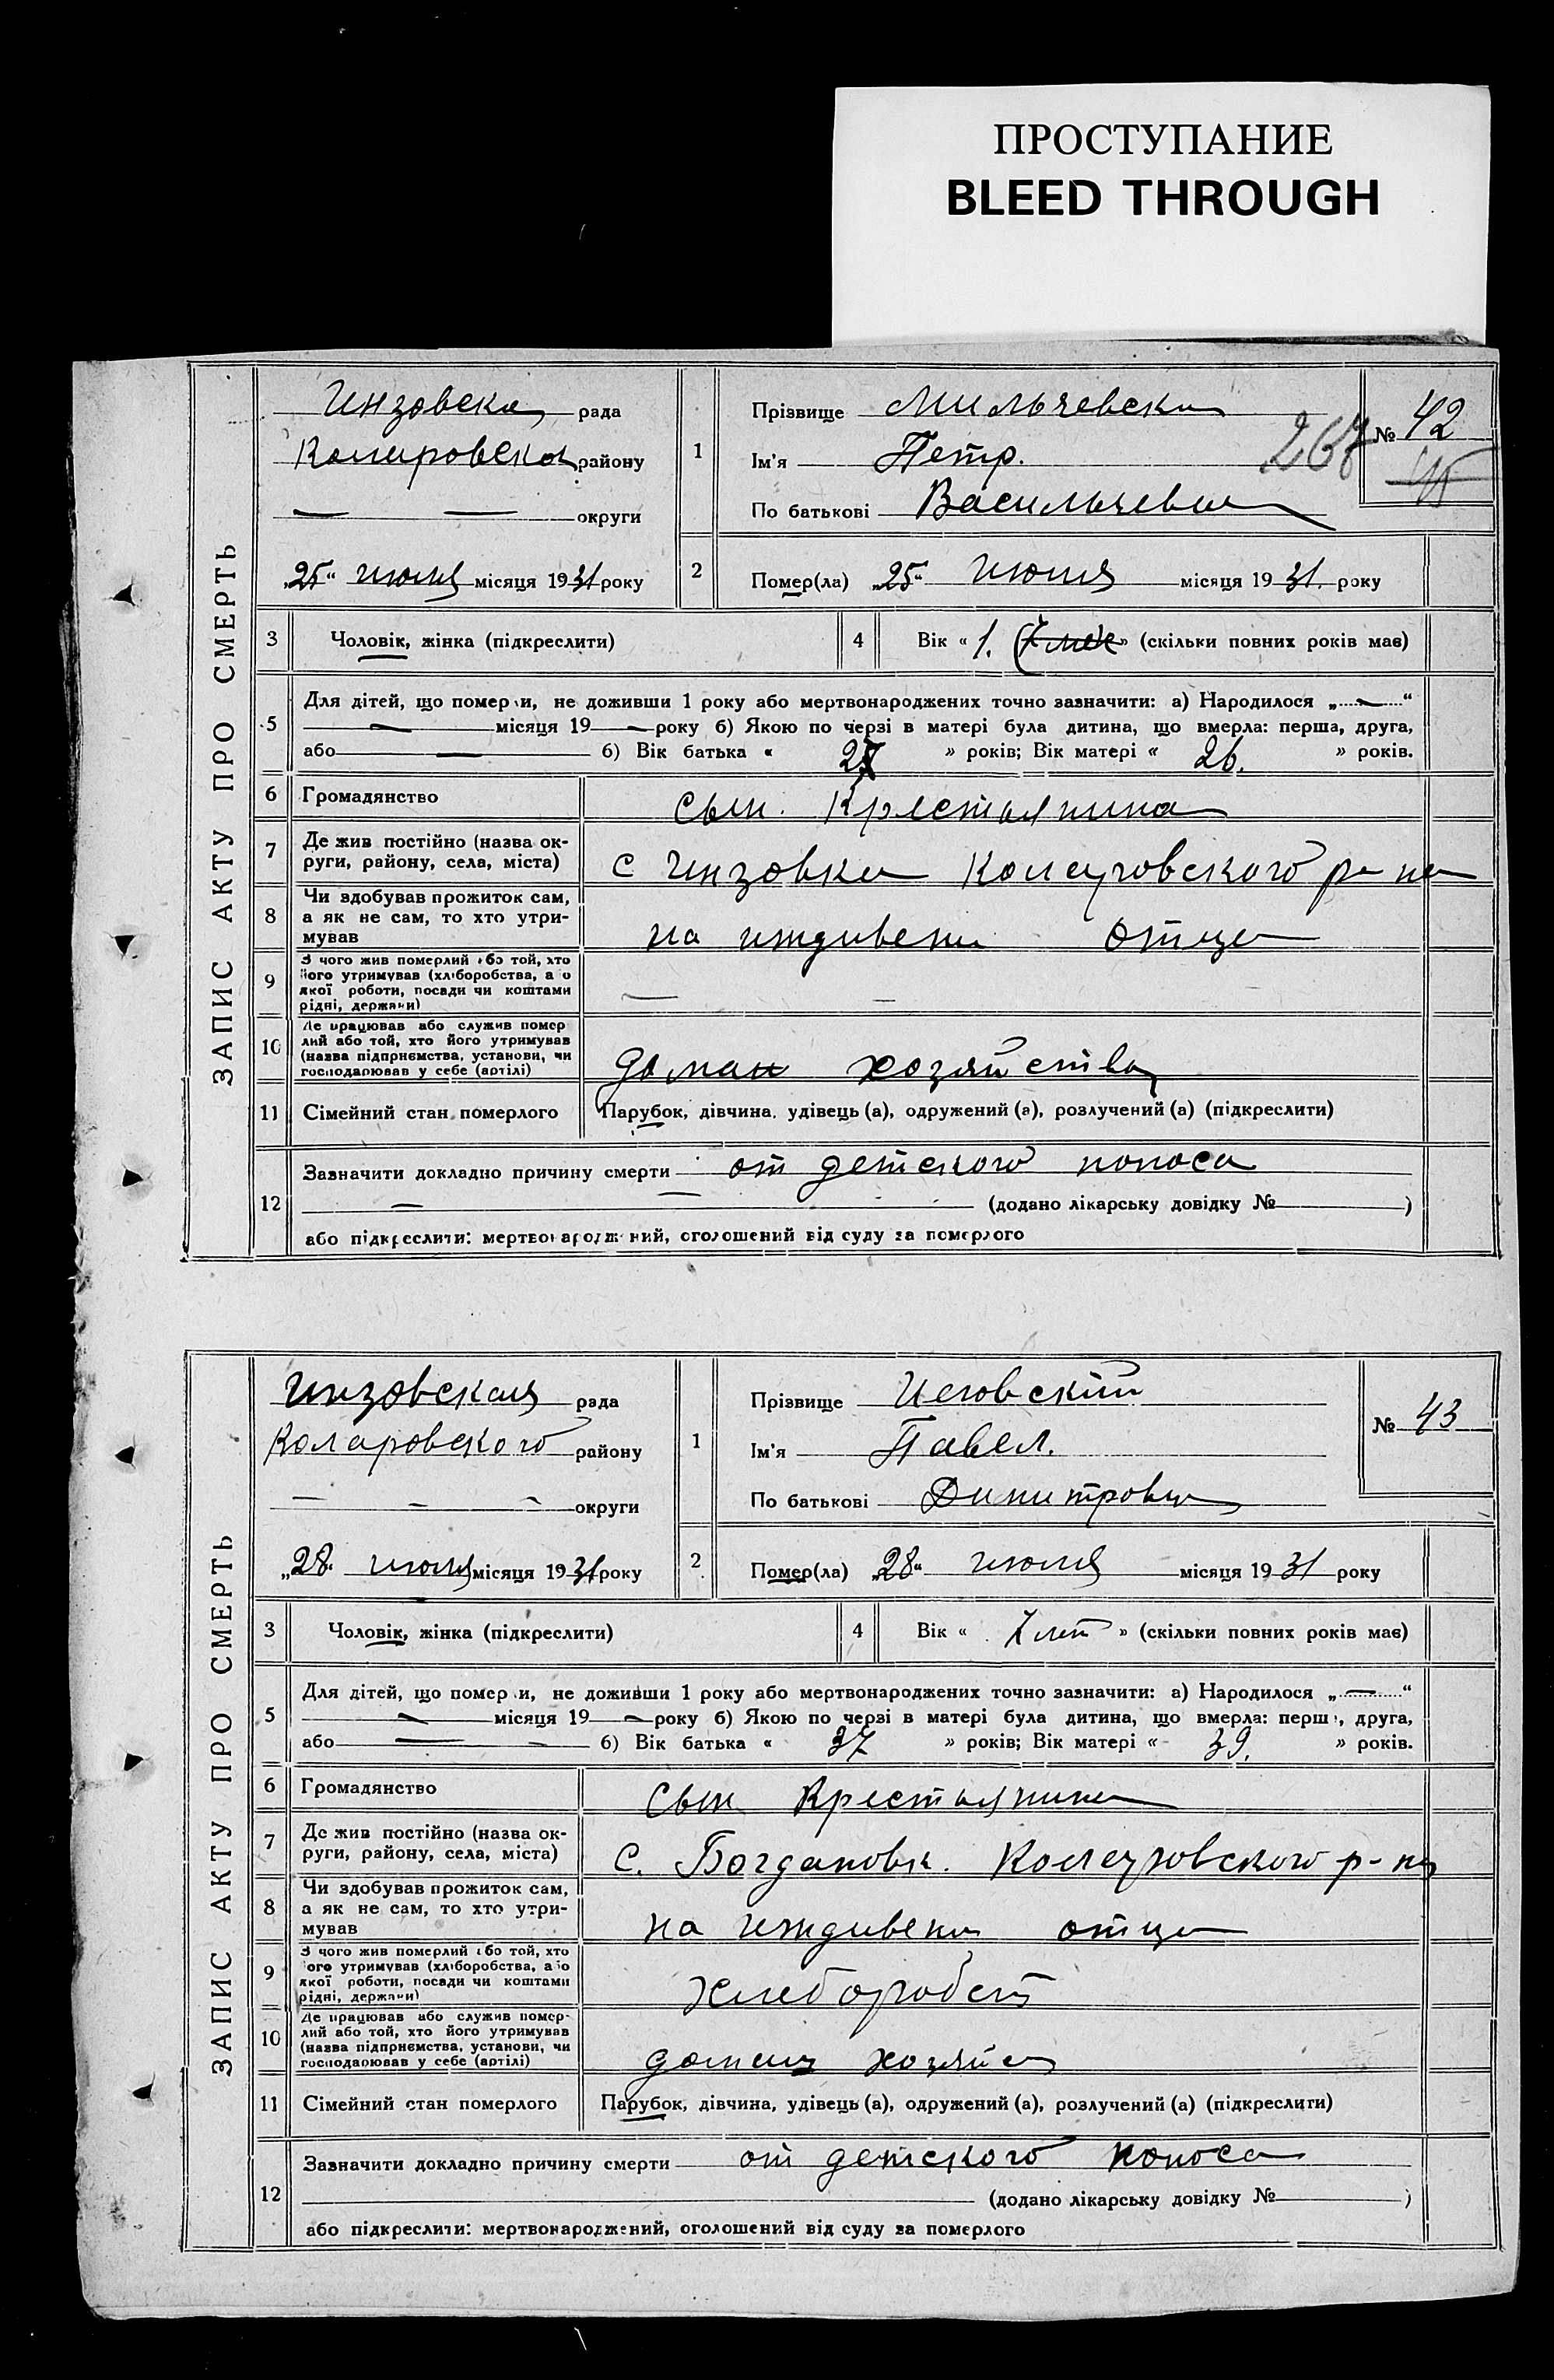 ПРОСТУПАНИЕ
BLEED THROUGH
ЗАПИС АКТУ ПРО СМЕРТЬ
Инзовска рада
района
— — округи
„25“ июля місяця 1931 року
1
Прізвище Мильчевски
Ім'я Петр.
По батькові Васильеви
267
№ 42
45
2
Помер(ла) „25“ июля місяця 1931. року
3 Чоловік, жінка (підкреслити)
4 Вік « 1. » (скільки повних років має)
5
Для дітей, що померли, не доживши 1 року або мертвонароджених точно зазначити: а) Народилося „—“
— місяця 19— року б) Якою по черзі в матері була дитина, що вмерла: перша, друга,
або — б) Вік батька « 27 » років; Вік матері « 26. » років.
6 Громадянство сын. Крестьянина
7 Де жив постійно (назва ок-
руги, району, села, міста) с Инзовка Коларовского р-на
8 Чи здобував прожиток сам,
а як не сам, то хто утри-
мував на иждивени отца
9 З чого жив померлий або той, хто
його утримував (хліборобства, або
якої роботи, посади чи коштами
рідні, держави) — —
10 Де працював або служив помер
лий або той, хто його утримував
(назва підприємства, установи, чи
господарював у себе (артілі) хозяйства
11 Сімейний стан померлого Парубок, дівчина, удівець (а), одружений (а), розлучений (а) (підкреслити)
12
Зазначити докладно причину смерти от детского поноса
— — (додано лікарську довідку № )
або підкреслити: мертвонароджений, оголошений від суду за померлого
ЗАПИС АКТУ ПРО СМЕРТЬ
Инзовская рада
Коларовского району
— — — округи
„28“ июля місяця 1931 року
1
Прізвище
Ім'я Павел.
По батькові Димитрови
№ 43
2
Помер(ла) „28“ июля місяця 1931 року
3 Чоловік, жінка (підкреслити)
4 Вік « 7 лет » (скільки повних років має)
5
Для дітей, що померли, не доживши 1 року або мертвонароджених точно зазначити: а) Народилося „—“
— місяця 19— року б) Якою по черзі в матері була дитина, що вмерла: перша, друга,
або — — б) Вік батька « 37 » років; Вік матері « 39. » років.
6 Громадянство Сын Крестьянина
7 Де жив постійно (назва ок-
руги, району, села, міста) с. Богдановк. Коларовского р-на
8 Чи здобував прожиток сам,
а як не сам, то хто утри-
мував на иждивени отца
9 З чого жив померлий або той, хто
його утримував (хліборобства, або
якої роботи, посади чи коштами
рідні, держави) хлеборобст
10 Де працював або служив помер-
лий або той, хто його утримував
(назва підприємства, установи, чи
господарював у себе (артілі)
11 Сімейний стан померлого Парубок, дівчина, удівець (а), одружений (а), розлучений (а) (підкреслити)
12
Зазначити докладно причину смерти от детского поноса
(додано лікарську довідку № )
або підкреслити: мертвонароджений, оголошений від суду за померлого